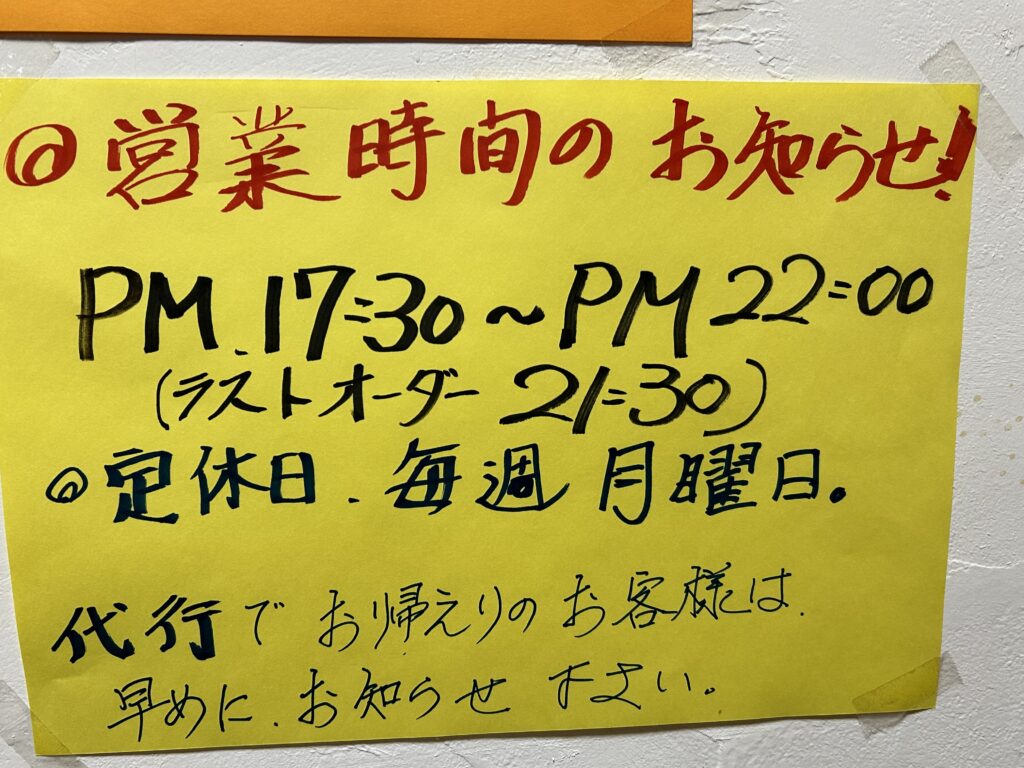 ◎営業時間のお知らせ!
PM.17:30～PM22:00
(ラストオーダー 21:30)
◎定休日.毎週月曜日。
代行でお帰えりのお客様は.
早めに.お知らせ下さい。